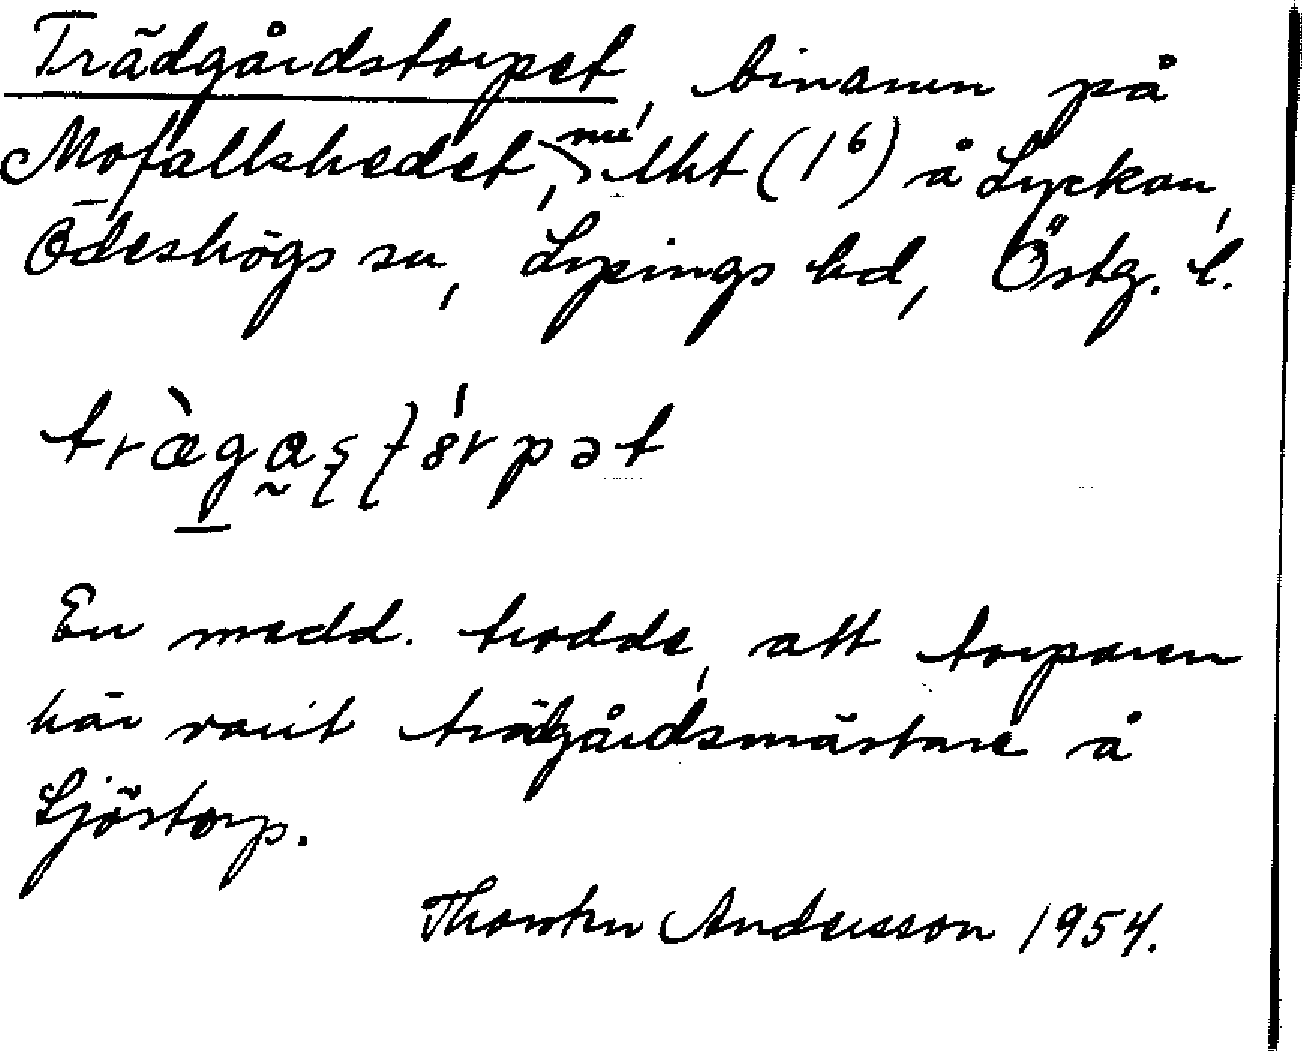 Trädgårdstorpet, binamn på
Mofallshedet, nu lht (1⁶) å Lyckan,
Ödeshögs sn, Lysings hd, Östg. l.
tràgaʂʈórpət
En medd. trodde, att torparen
här varit trädgårdsmästare å
Sjöstorp.
Thorsten Andersson 1954.